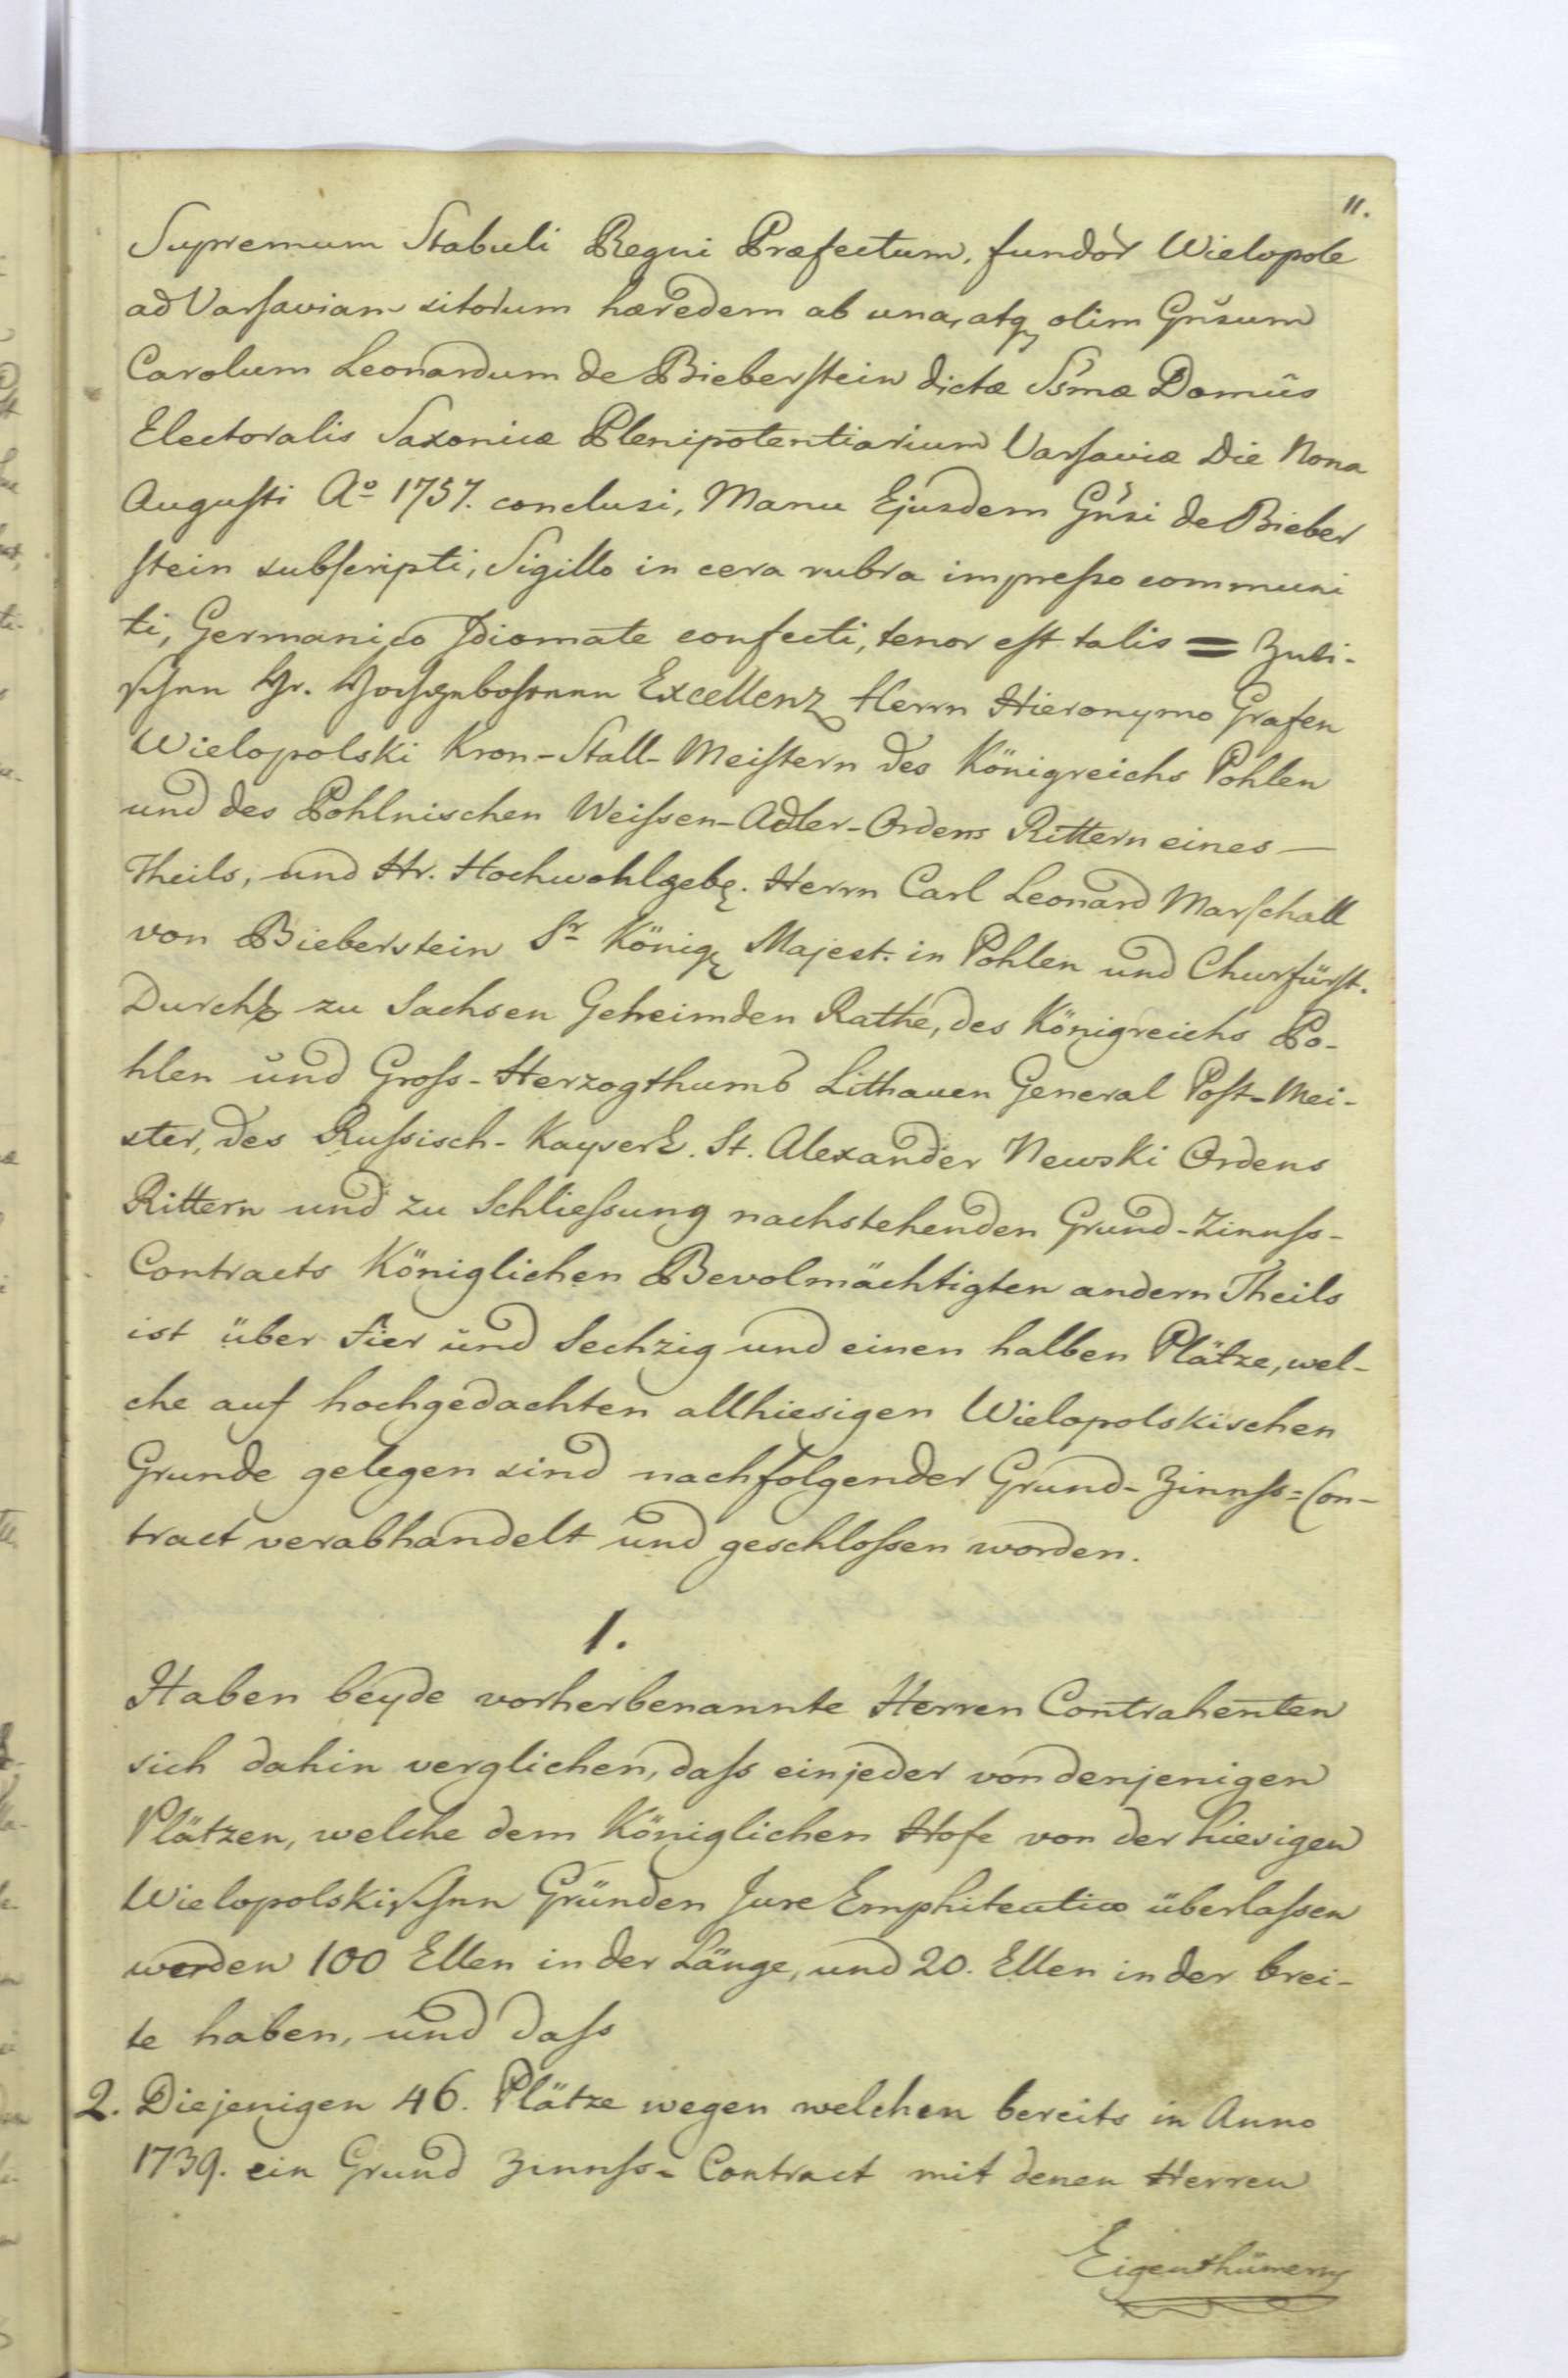 11.
Supremum Stabuli Regni Præfectum, fundor̃ Wielopole
ad Varſaviam sitorum hæredem ab una, atq olim Gñsum
Carolum Leonardum de Bieberſtein dictæ Ssmæ Domûs
Electoralis Saxonicæ Plenipotentiarium Varſaviæ Die Nona
Auguſti Aº 1757. conclusi, Manu Ejusdem Gñsi de Bieber
ſtein subſcripti, Sigillo in cera rubra impreſso communi
ti, Germanico Idiomate confecti, tenor eſt talis = Zwi-
ſchen Hr. Hochgebohrnen Excellenz Herrn Hieronymo Grafen
Wielopolski Kron-Stall-Meiſtern des Königreichs Pohlen
und des Pohlnischen Weiſsen-Adler-Ordens Rittern eines —
Theils, und Hr. Hochwohlgeb. Herrn Carl Leonard Marſchall
von Bieberstein Sr König Majest. in Pohlen und Churfürſt.
Durchl zu Sachsen Geheimden Rathe, des Königreichs Po-
hlen und Groſs-Herzogthumb Litthauen General Poſt-Mei-
ster, des Ruſsisch-Kayserl. St. Alexander Newski Ordens
Rittern und zu Schlieſsung nachstehenden Grund-Zinnſs-
Contracts Königlichen Bevolmächtigten andern Theils
ist über Fier und Sechzig und einen halben Plätze, wel-
che auf hochgedachten allhiesigen Wielopolskischen
Grunde gelegen sind nachfolgender Grund-Zinnſs=Con-
tract verabhandelt und geschloſsen worden.
1.
Haben beyde vorherbenannte Herren Contrahenten
sich dahin verglichen, daſs einjeder von denjenigen
Plätzen, welche dem Königlichen Hofe von der hiesigen
Wielopolskiſchen Gründen Jure Emphiteutico überlaſsen
werden 100 Ellen in der Länge, und 20. Ellen in der brei-
te haben, und daſs
2. Diejenigen 46. Plätze wegen welchen bereits in Anno
1739. ein Grund Zinnſs-Contract mit denen Herren
Eigenthümern